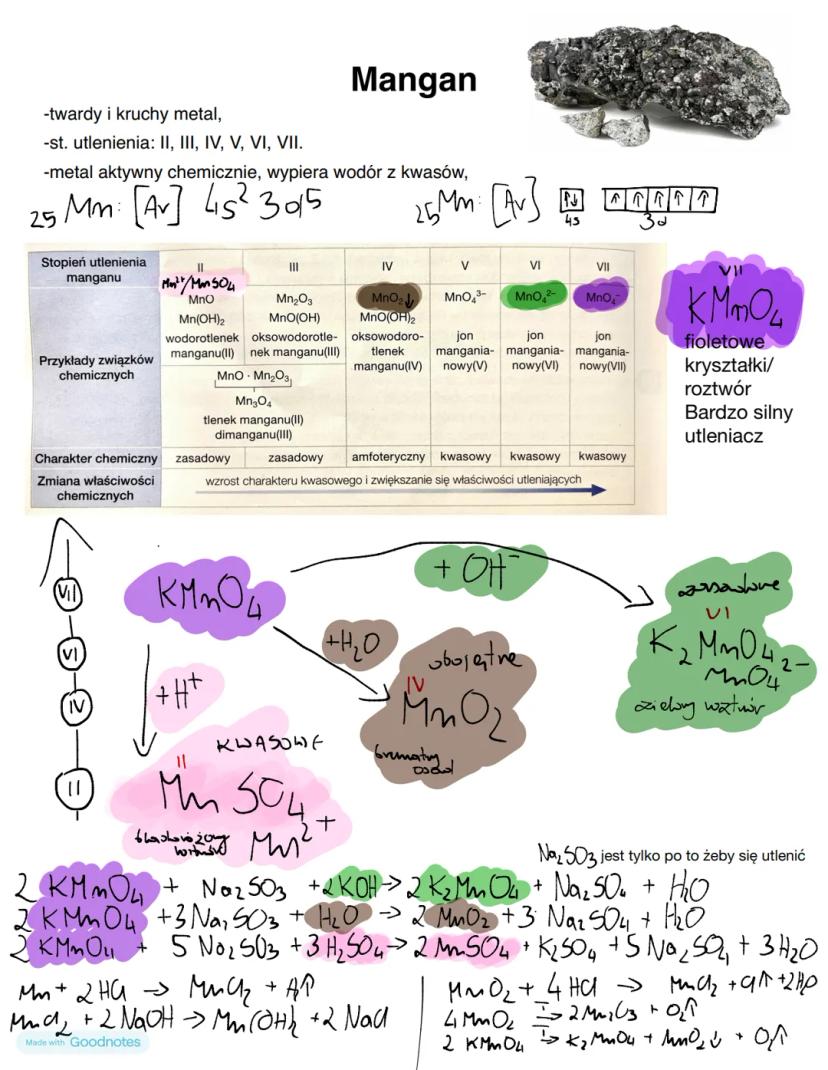 Mangan
-twardy i kruchy metal,
-st. utlenienia: II, III, IV, V, VI, VII.
-metal aktywny chemicznie, wypiera wodór z kwasów,
₂₅Mn: [Ar] 4s² 3d⁵
₂₅Mn: [Ar] ↑↓ ↑ ↑ ↑ ↑ ↑
4s 3d
Stopień utlenienia manganu II III IV V VI VII
Mn²⁺/MnSO₄
Przykłady związków chemicznych
MnO Mn₂O₃ MnO₂↓ MnO₄³⁻ MnO₄²⁻ MnO₄⁻
Mn(OH)₂ MnO(OH) MnO(OH)₂
wodorotlenek manganu(II)
oksowodorotle-nek manganu(III)
oksowodoro-tlenek manganu(IV)
jon mangania-nowy(V)
jon mangania-nowy(VI)
jon mangania-nowy(VII)
MnO · Mn₂O₃
Mn₃O₄
tlenek manganu(II)
dimanganu(III)
Charakter chemiczny zasadowy zasadowy amfoteryczny kwasowy kwasowy kwasowy
Zmiana właściwości chemicznych
wzrost charakteru kwasowego i zwiększanie się właściwości utleniających
VII
KMnO₄
fioletowe
kryształki/
roztwór
Bardzo silny
utleniacz
VII
VI
IV
II
KMnO₄
+ OH⁻
+H₂O
+H⁺
zasadowe
VI
K₂MnO₄
MnO₄²⁻
zielony roztwór
obojętne
IV
MnO₂
brunatny
osad
KWASOWE
II
MnSO₄
bladoróżowy
roztwór
Mn²⁺
Na₂SO₃ jest tylko po to żeby się utlenić
2 KMnO₄ + Na₂SO₃ + 2KOH → 2 K₂MnO₄ + Na₂SO₄ + H₂O
2 KMnO₄ + 3 Na₂SO₃ + H₂O → 2 MnO₂ + 3 Na₂SO₄ + H₂O
2 KMnO₄ + 5 Na₂SO₃ + 3 H₂SO₄ → 2 MnSO₄ + K₂SO₄ + 5 Na₂SO₄ + 3 H₂O
Mn + 2HCl → MnCl₂ + H↑
MnCl₂ + 2 NaOH → Mn(OH)₂ + 2 NaCl
MnO₂ + 4 HCl → MnCl₂ + Cl↑ + 2H₂O
4 MnO₂ → 2 Mn₂O₃ + O₂↑
2 KMnO₄ → K₂MnO₄ + MnO₂↓ + O₂↑
Made with Goodnotes